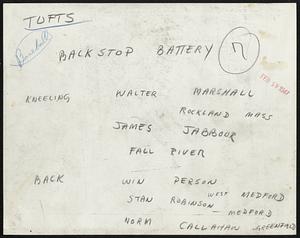 TUFTS
Baseball
BACKSTOP BATTERY 7
KNEELING WALTER MARSHALL
ROCKLAND MASS
JAMES JABBOUR
FALL RIVER
BACK WIN PERSON
WEST MEDFORD
STAN ROBINSON — MEDFORD
NORM CALLAHAN GREENFIELD